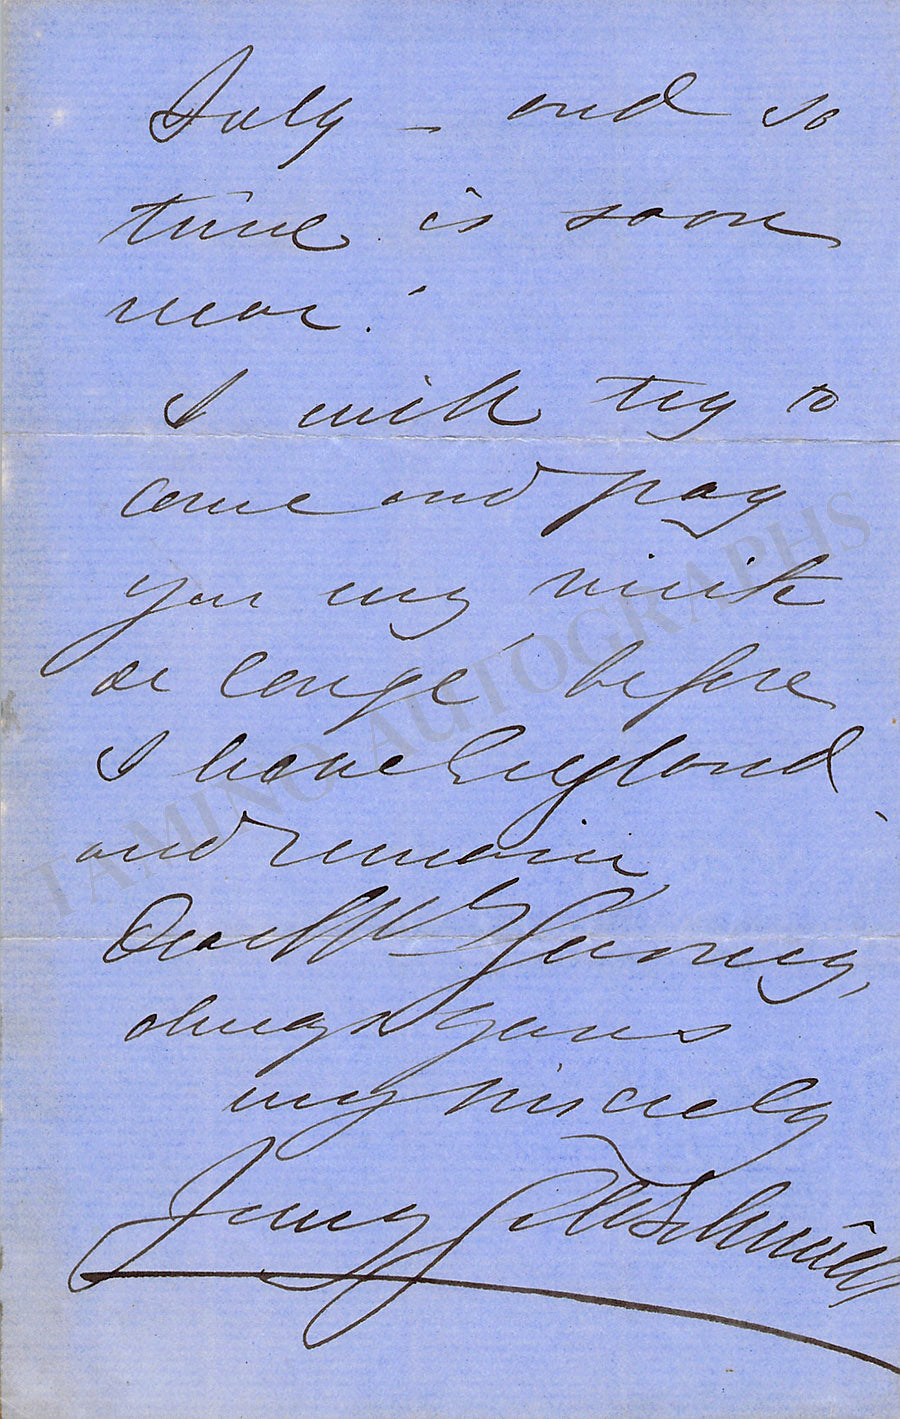 July – and so
time is soon
near!
I will try to
come and pay
you my visit
de congé before
I leave England
and remain
Dear
always yours
very sincerely
Jenny Goldschmidt
TAMINO AUTOGRAPHS